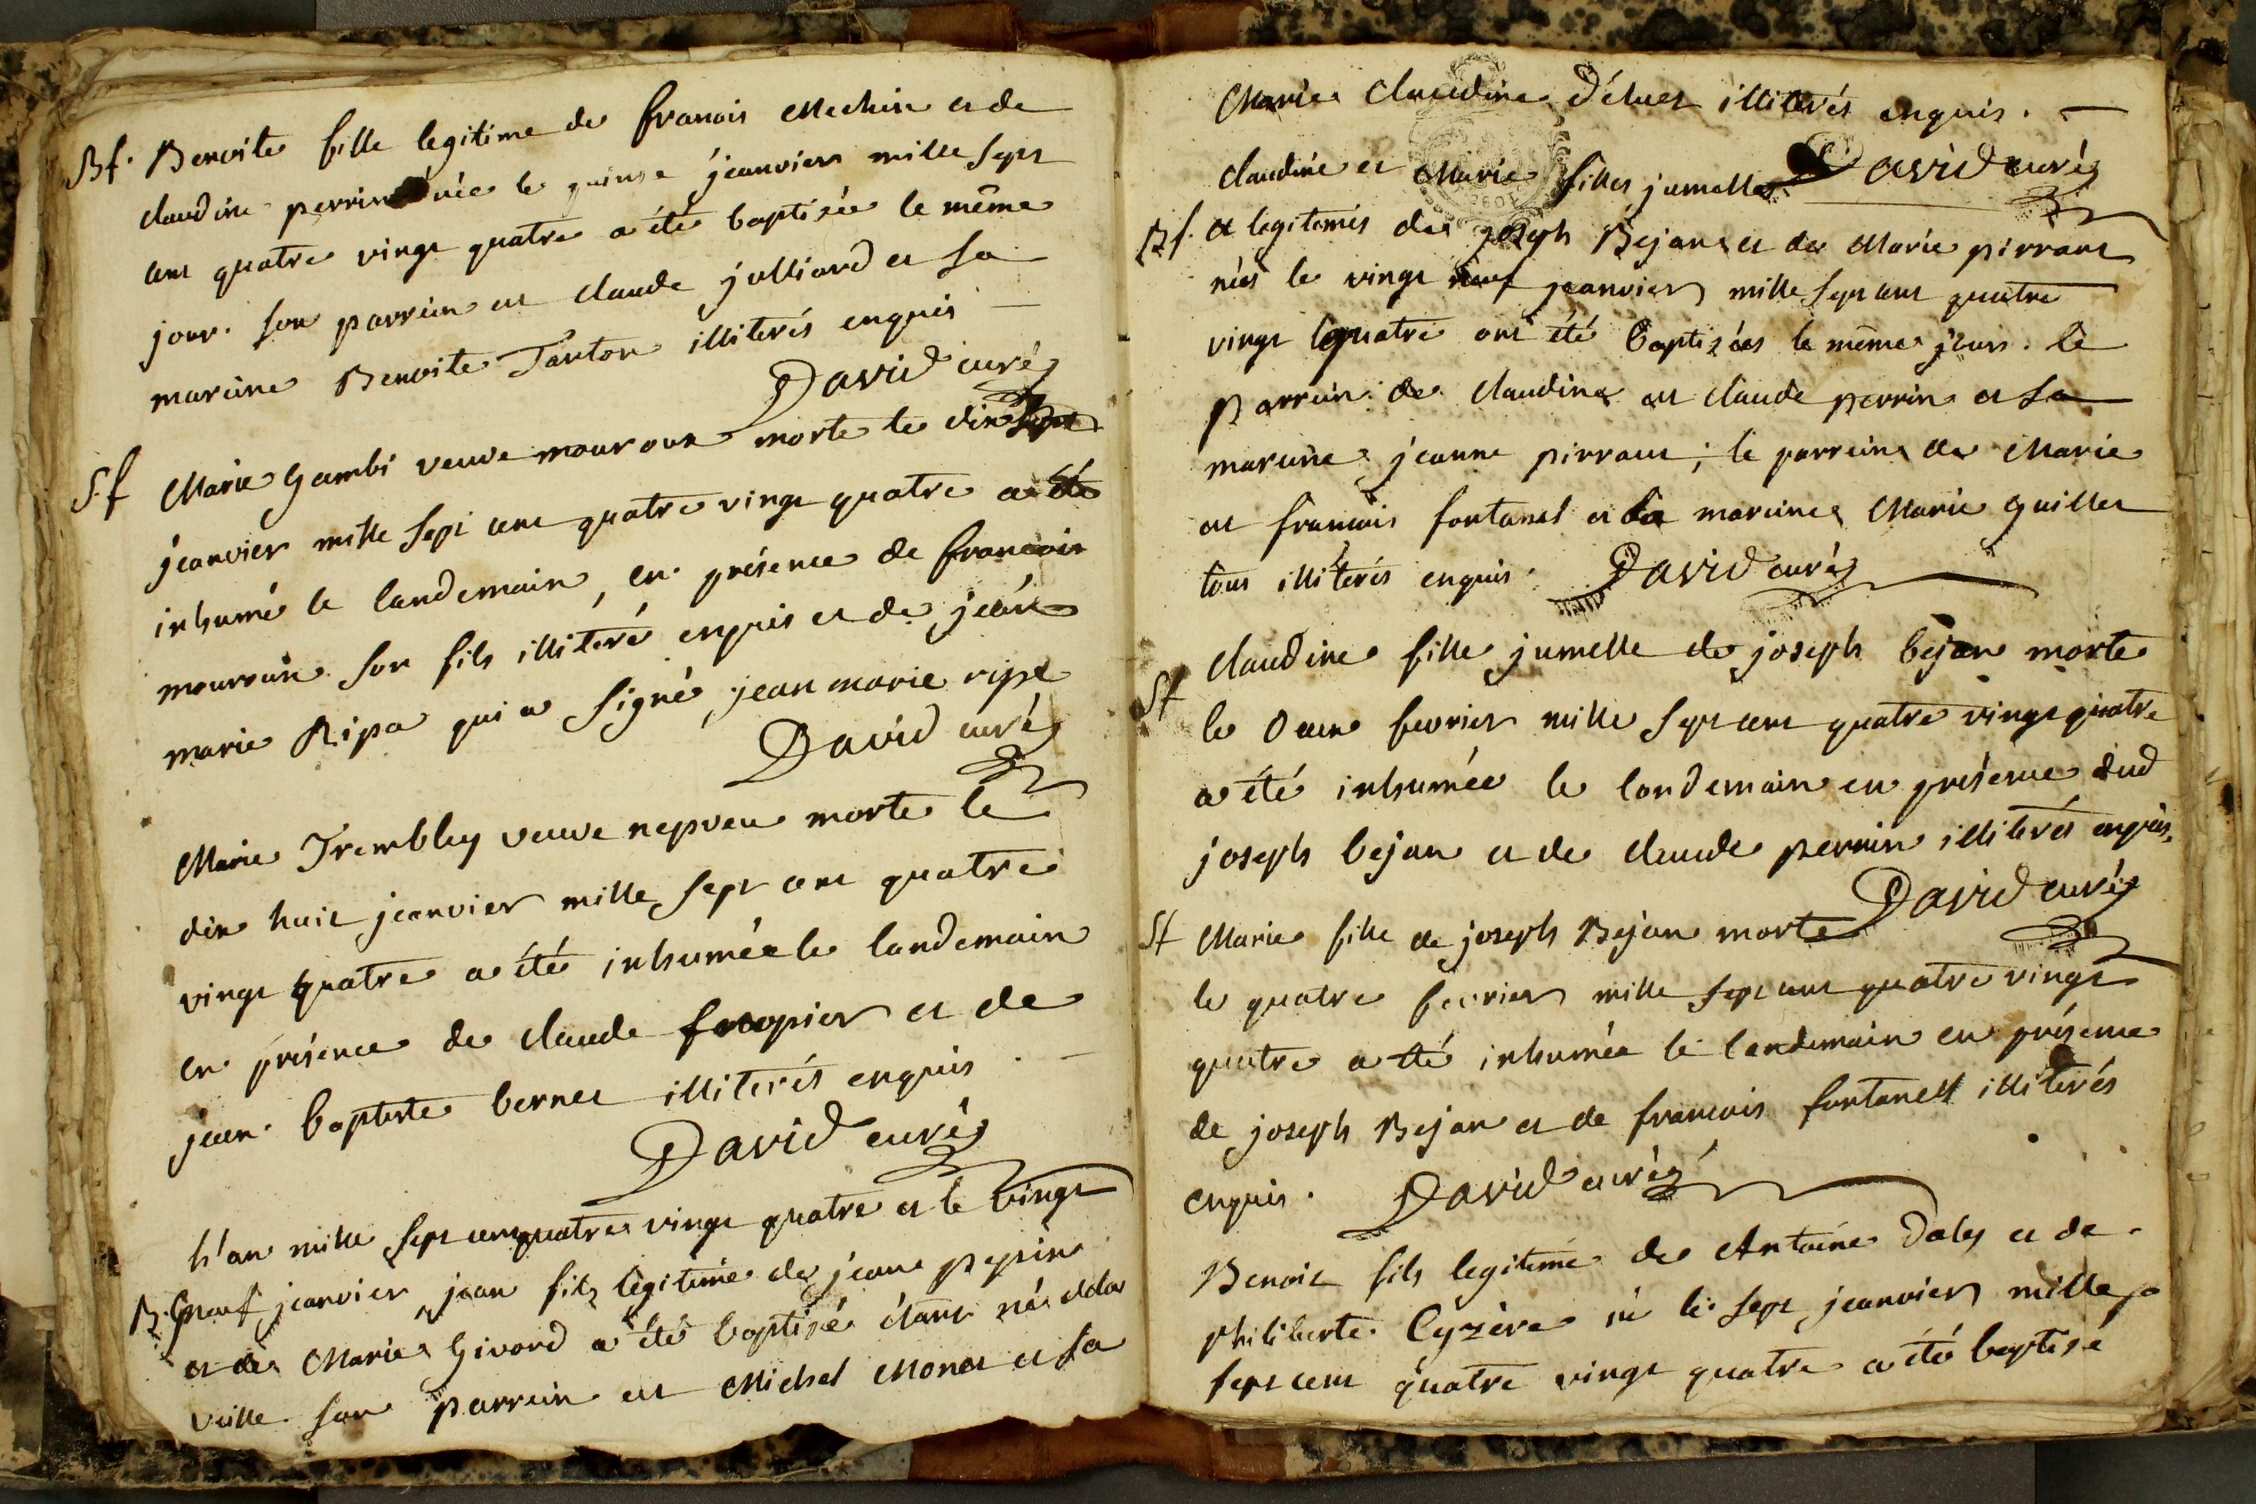 Bf. Benoite fille legitime de francois Mechin et de
claudine perrin née le quinse jeanvier mille sept
cent quatre vingt quatre a été baptisée le même
jour. son parrein est claude julliard et sa
mareine Benoite Tanton illiterés enquis
David curé
S.f Marie Gambi veuve mouroux morte le dix sept
jeanvier mille sept cent quatre vingt quatre a été
inhumé le landemain, en présence de francois
mouroux son fils illiteré enquis et de jean
marie Ripa qui a signé, jean marie ripa
David curé
Marie Trembley veuve nepveu morte le
dix huit jeanvier mille sept cent quatre
vingt quatre a été inhumée le landemain
en présence de claude et de
jean baptiste bernet illiterés enquis
David curé
L'an mille sept cent quatre vingt quatre et le vingt
B. G neuf jeanvier jean fils legitime de jean pepin
et de Marie Givord a été baptisé étant né de la
veille son parrein est Michel Monet et sa
Marie Claudine illiterés enquis.
David curé
claudine et Marie filles jumelles
Bf. et legitimes de joseph Bejan et de Marie pirraut
nées le vingt neuf jeanvier mille sept cent quatre
vingt quatre ont été baptizées le même jour. le
parrein de claudine est claude perrin et sa
mareine jeanne pirraut; le parrein de Marie
est francois fontanel et sa mareine Marie guillet
tous illiterés enquis. David curé
Sf claudine fille jumelle de joseph bejan morte
le deux fevrier mille sept cent quatre vingt quatre
a été inhumée le landemain en présence dud
joseph bejan et de claude perrin illiterés enquis.
David curé
Sf Marie fille de joseph Bejan morte
le quatre fevrier mille sept cent quatre vingt
quatre a été inhumée le landemain en présence
de joseph Bejan et de francois fontanell illiterés
enquis. David curé
Benoit fils legitime de Antoine Daly et de
philiberte Cyzère né le sept jeanvier mille
sept cent quatre vingt quatre a été baptisé